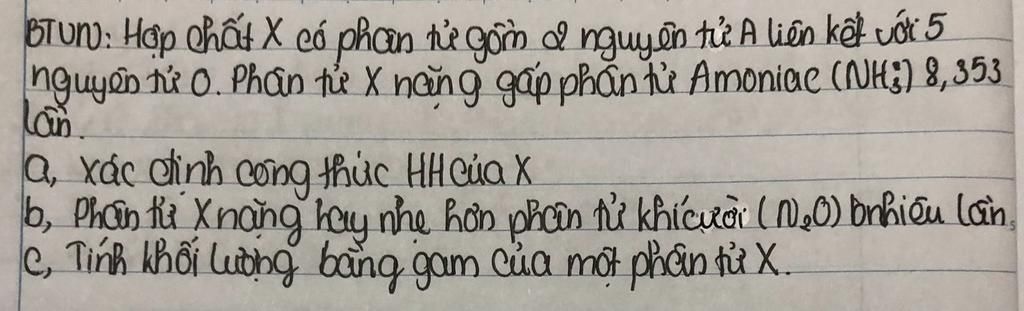 BTVN: Hợp chất X có phân tử gồm 2 nguyên tử A liên kết với 5
nguyên tử O. Phân tử X nặng gấp phân tử Amoniac (NH₃) 8,353
lần.
a, xác định công thức HH của X
b, Phân tử X nặng hay nhẹ hơn phân tử khí cười (N₂O) bnhiêu lần.
c, Tính khối lượng bằng gam của một phân tử X.